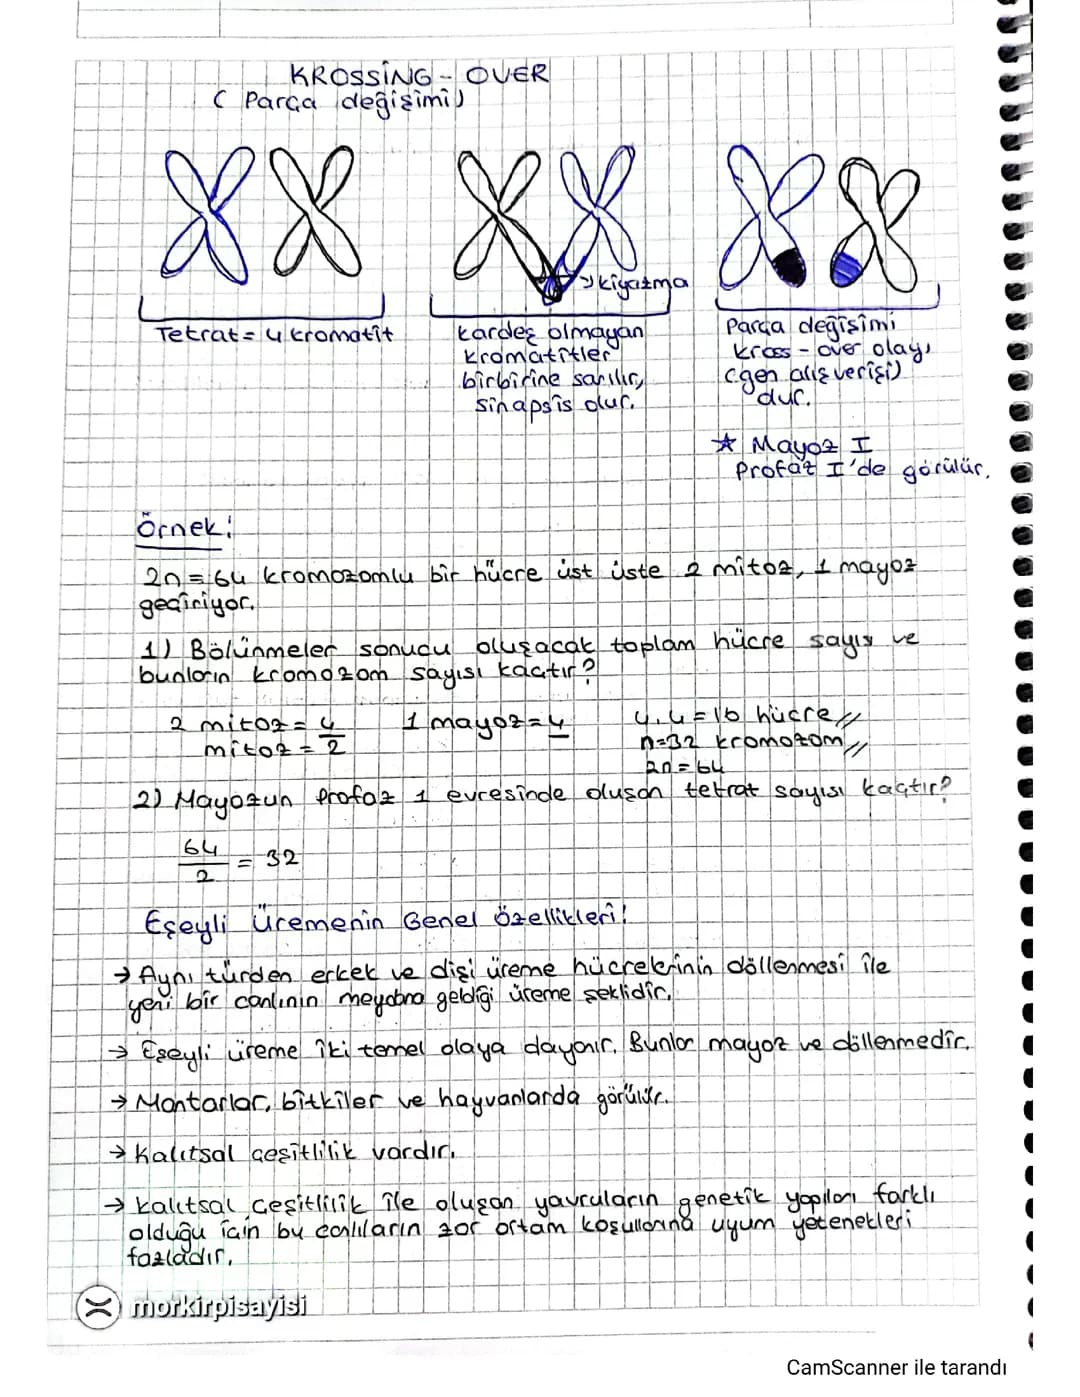 KROSSİNG - OVER
( Parça değişimi)
kiyazma
Tetrat = 4 kromatit
kardeş olmayan
kromatitler
birbirine sarılır,
sinapsis olur.
Parça değişimi
kross - over olayı
(gen alış verişi)
dur.
☆ Mayoz I
Profaz I'de görülür.
Örnek:
2n = 64 kromozomlu bir hücre üst üste 2 mitoz, 1 mayoz
geçiriyor.
1) Bölünmeler sonucu oluşacak toplam hücre sayısı ve
bunların kromozom sayısı kaçtır?
2 mitoz = 4
mitoz = 2
1 mayoz = 4
4.4 = 16 hücre //
n=32 kromozom //
2n = 64
2) Mayozun profaz 1 evresinde oluşan tetrat sayısı kaçtır?
64
2
= 32
Eşeyli Üremenin Genel Özellikleri:
→ Aynı türden erkek ve dişi üreme hücrelerinin döllenmesi ile
yeni bir canlının meydana geldiği üreme şeklidir.
→ Eşeyli üreme iki temel olaya dayanır. Bunlar mayoz ve döllenmedir.
→ Mantarlar, bitkiler ve hayvanlarda görülür.
→ Kalıtsal çeşitlilik vardır.
→ Kalıtsal çeşitlilik ile oluşan yavruların genetik yapıları farklı
olduğu için bu canlıların zor ortam koşullarına uyum yetenekleri
fazladır.
morkirpisayisi
CamScanner ile tarandı